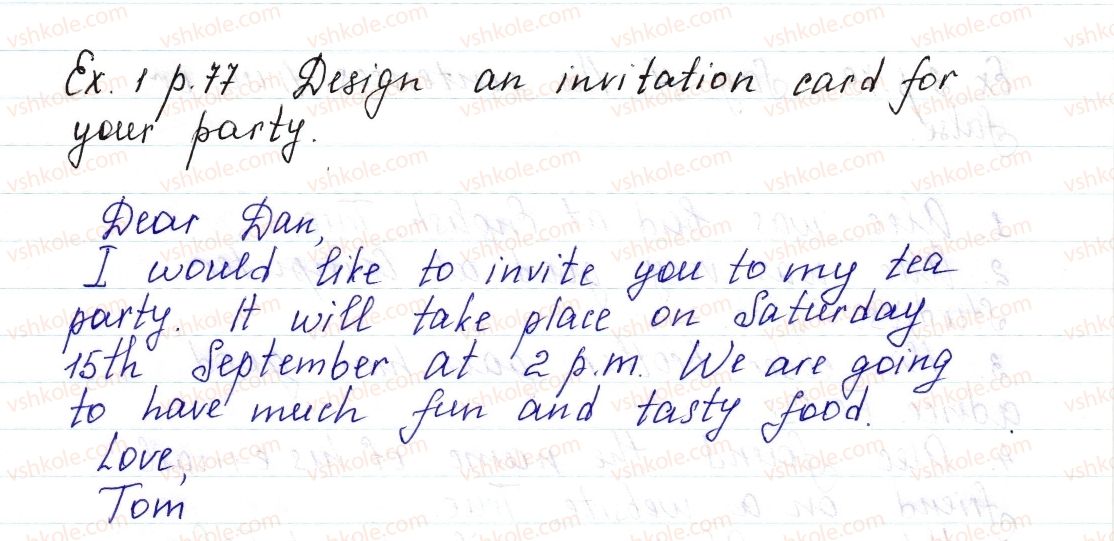 Ex. 1 p. 77 Design an invitation card for
your party.
Dear Dan,
I would like to invite you to my tea
party. It will take place on Saturday
15th September at 2 p.m. We are going
to have much fun and tasty food.
Love,
Tom
vshkole.com